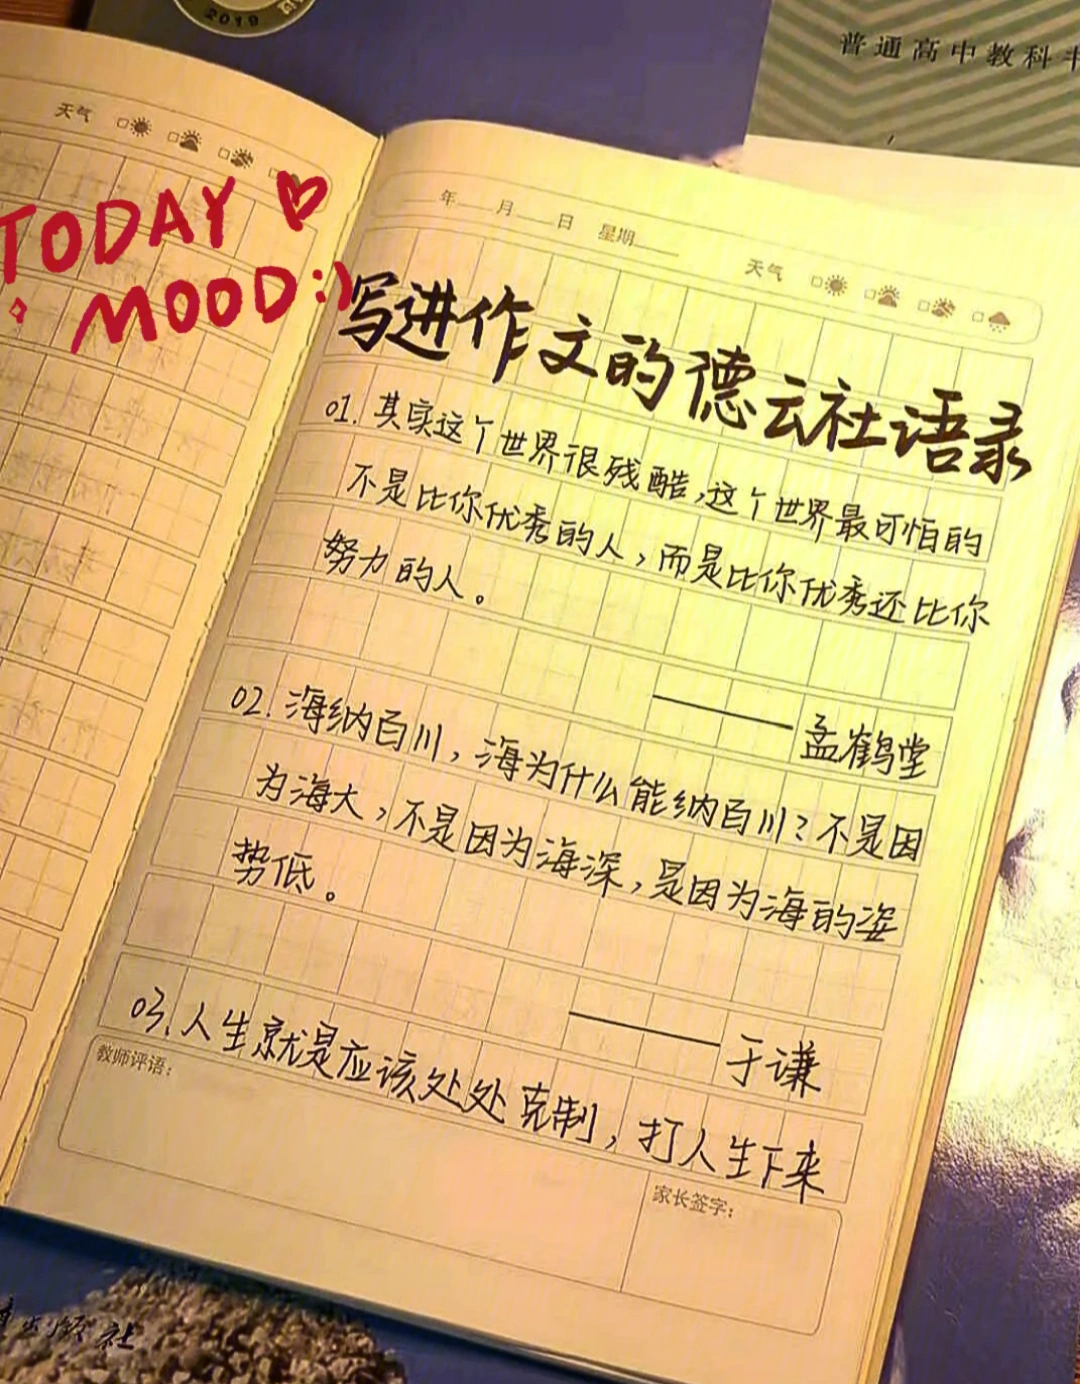 2019
普通高中教科书
天气
TODAY
MOOD:)
年 月 日 星期
天气
写进作文的德云社语录
01. 其实这个世界很残酷,这个世界最可怕的
不是比你优秀的人,而是比你优秀还比你
努力的人。
——孟鹤堂
02. 海纳百川,海为什么能纳百川?不是因
为海大,不是因为海深,是因为海的姿
势低。
——于谦
03. 人生就是应该处处克制,打人生下来
教师评语:
家长签字:
出版社